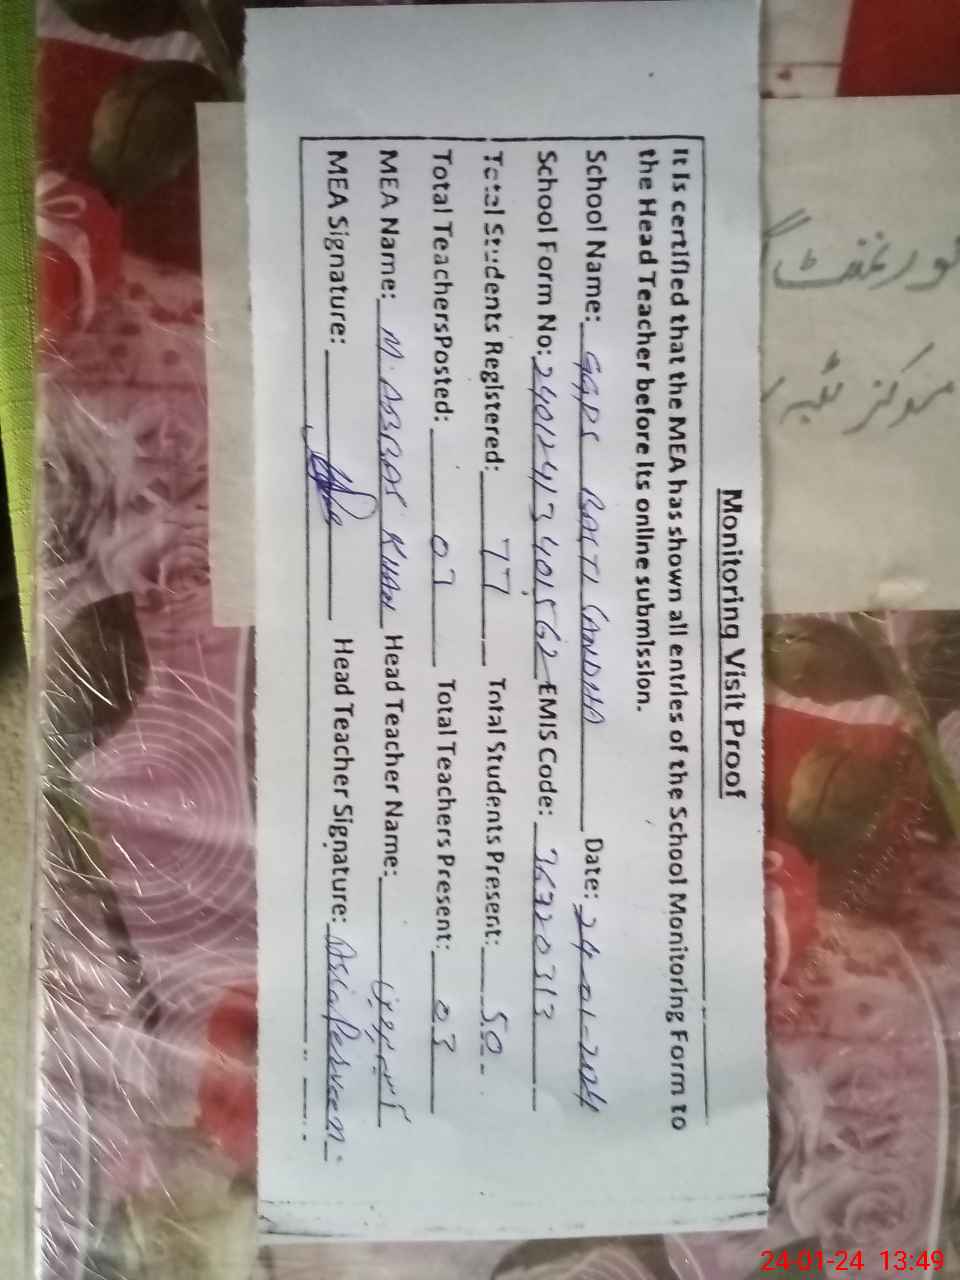 گورنمنٹ
مرکز
Monitoring Visit Proof
It is certified that the MEA has shown all entries of the School Monitoring Form to
the Head Teacher before its online submission.
School Name: GGPS BASTI Date: 24-01-2024
School Form No: EMIS Code:
Total Students Registered: 77 Total Students Present: 50
Total TeachersPosted: 03 Total Teachers Present: 03
MEA Name: M. ABBAS KHAN Head Teacher Name: آسیہ پروین
MEA Signature: Head Teacher Signature: Asia Perveen
24-01-24 13:49